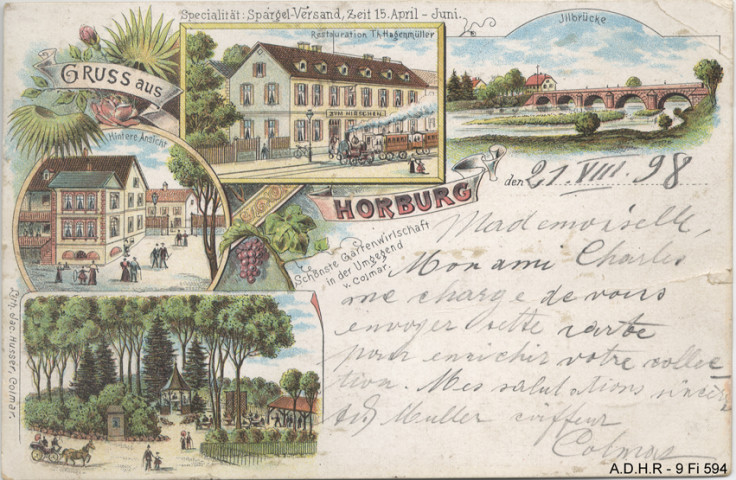 Specialität: Spargel-Versand, Zeit 15. April - Juni.
GRUSS aus
Restauration Th. Hagenmüller
ZUM HIRSCHEN
Jllbrücke
Hintere Ansicht
HORBURG
Schönste Gartenwirtschaft
in der Umgegend
v. Colmar.
den 21. VIII. 98
Mademoiselle,
Mon ami Charles
me charge de vous
envoyer cette carte
pour enrichir votre collec-
tion. Mes salutations sincè-
Muller coiffeur
Colmar
Lith. Jac. Husser, Colmar.
A.D.H.R - 9 Fi 594